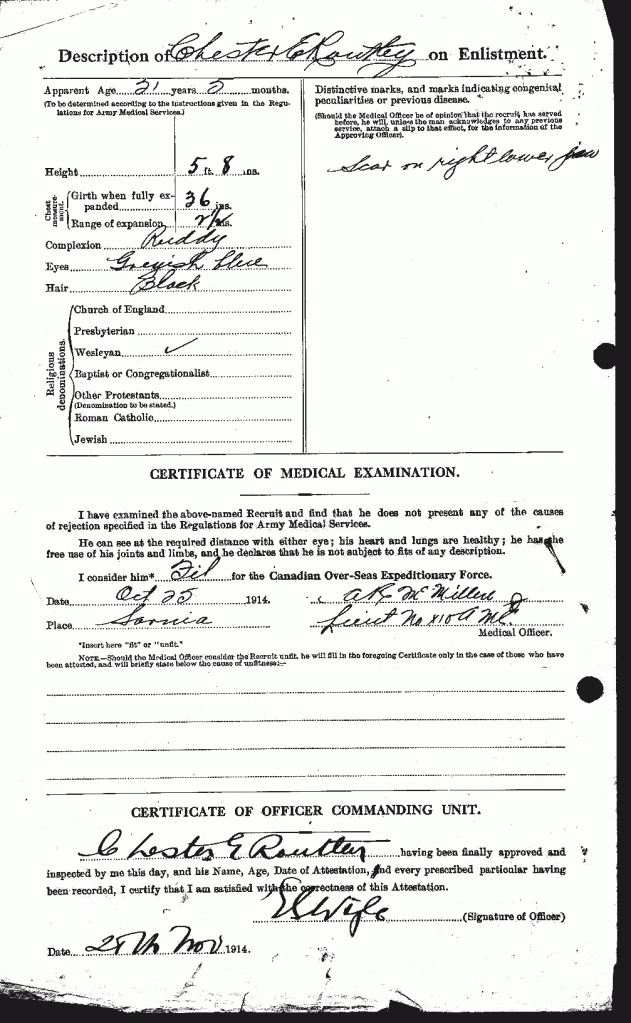 Description of Chester E Routley on Enlistment.
Apparent Age 21 years 5 months.
(To be determined according to the instructions given in the Regulations for Army Medical Services.)
Height 5 ft. 8 ins.
Chest measurement.
Girth when fully expanded 36 ins.
Range of expansion ins.
Complexion Ruddy
Eyes Greyish blue
Hair Black
Religious denominations.
Church of England
Presbyterian
Wesleyan ✓
Baptist or Congregationalist
Other Protestants
(Denomination to be stated.)
Roman Catholic
Jewish
Distinctive marks, and marks indicating congenital
peculiarities or previous disease.
(Should the Medical Officer be of opinion that the recruit has served
before, he will, unless the man acknowledges to any previous
service, attach a slip to that effect, for the information of the
Approving Officer).
Scar on right lower jaw
CERTIFICATE OF MEDICAL EXAMINATION.
I have examined the above-named Recruit and find that he does not present any of the causes
of rejection specified in the Regulations for Army Medical Services.
He can see at the required distance with either eye; his heart and lungs are healthy; he has the
free use of his joints and limbs, and he declares that he is not subject to fits of any description.
I consider him* Fit for the Canadian Over-Seas Expeditionary Force.
Date Oct 25 1914.
Place Sarnia
McMillen
Lieut No X 10 A MC
Medical Officer.
*Insert here "fit" or "unfit."
NOTE.—Should the Medical Officer consider the Recruit unfit, he will fill in the foregoing Certificate only in the case of those who have
been attested, and will briefly state below the cause of unfitness:—
CERTIFICATE OF OFFICER COMMANDING UNIT.
Chester E Routley having been finally approved and
inspected by me this day, and his Name, Age, Date of Attestation, and every prescribed particular having
been recorded, I certify that I am satisfied with the correctness of this Attestation.
(Signature of Officer)
Date 25th Nov 1914.